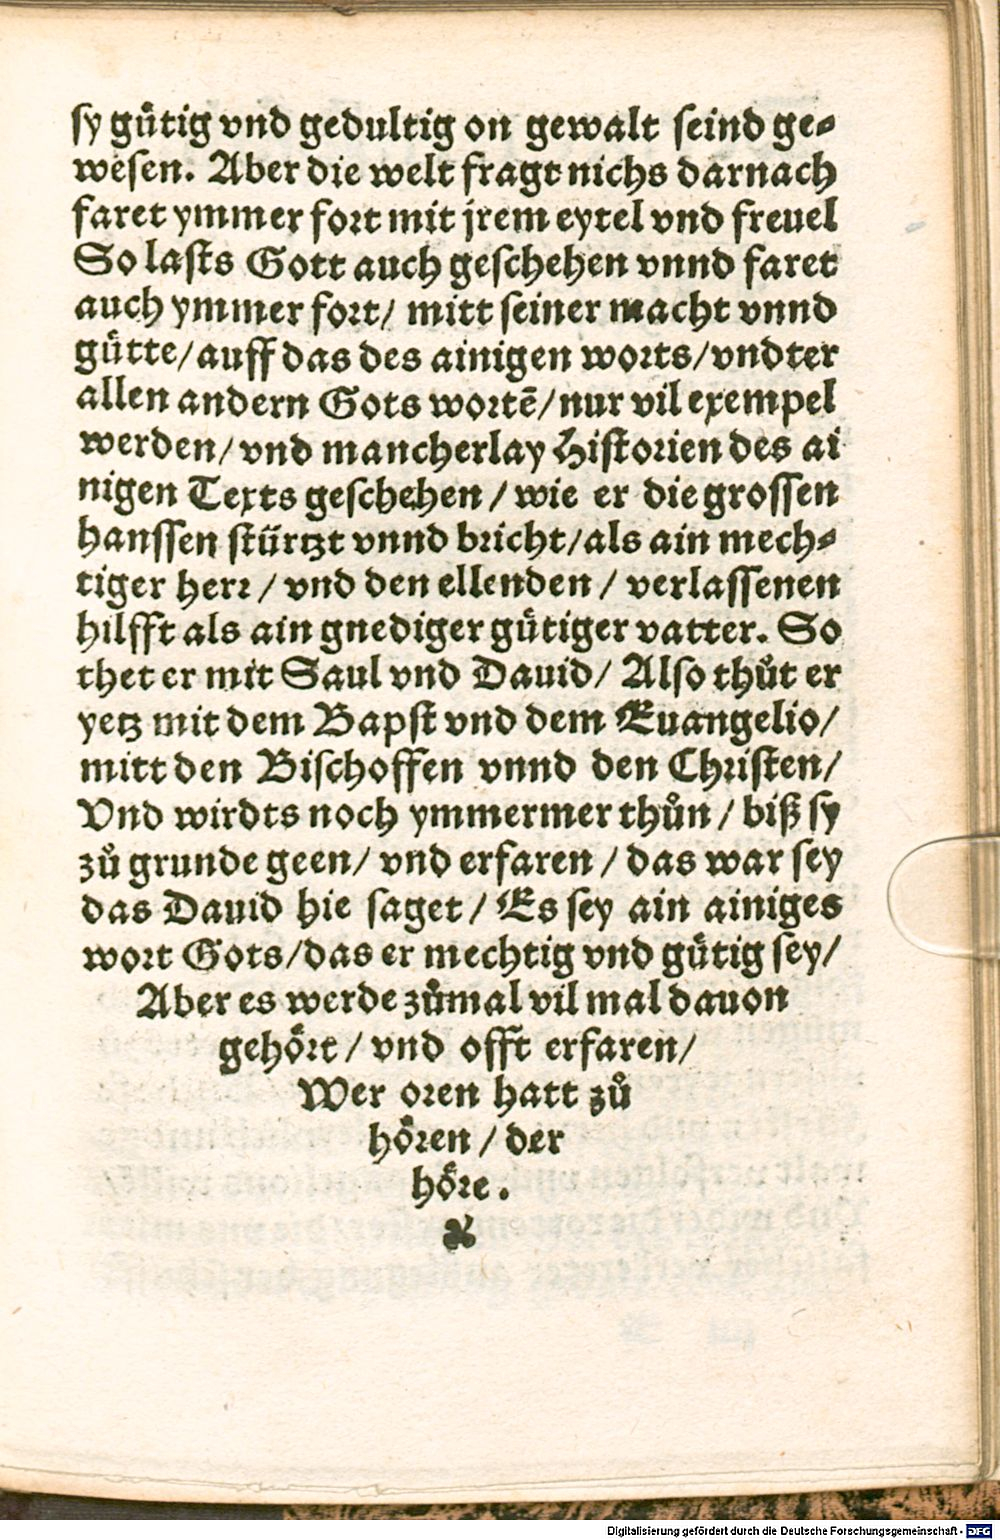 sy guͤtig vnd gedultig on gewalt seind ge⸗
wesen. Aber die welt fragt nichs darnach
faret ymmer fort mit jrem eytel vnd freuel
So lasts Gott auch geschehen vnnd faret
auch ymmer fort/ mitt seiner macht vnnd
guͤtte/auff das des ainigen worts/vndter
allen andern Gots wortē/nur vil exempel
werden/vnd mancherlay Historien des ai
nigen Texts geschehen/wie er die grossen
hanssen stürtzt vnnd bricht/als ain mech⸗
tiger herr/vnd den ellenden/ verlassenen
hilfft als ain gnediger guͤtiger vatter. So
thet er mit Saul vnd Dauid/ Also thuͦt er
yetz mit dem Bapst vnd dem Euangelio/
mitt den Bischoffen vnnd den Christen/
Vnd wirdts noch ymmermer thuͦn/biß sy
zuͦ grunde geen/ vnd erfaren/das war sey
das Dauid hie saget/Es sey ain ainiges
wort Gots/das er mechtig vnd guͤtig sey/
Aber es werde zuͦmal vil mal dauon
gehoͤrt/vnd offt erfaren/
Wer oren hatt zuͦ
hoͤren/der
hoͤre.
Digitalisierung gefördert durch die Deutsche Forschungsgemeinschaft - DFG